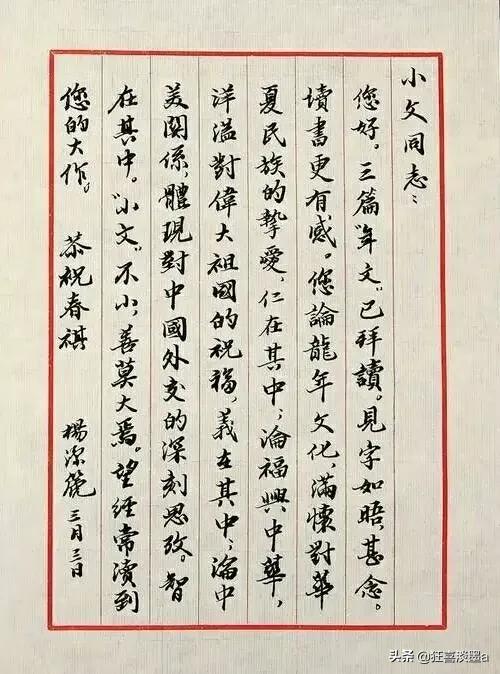 小文同志：
您好。三篇“年文”已拜讀。見字如晤，甚念。
讀書更有感。您論龍年文化，滿懷對華
夏民族的摯愛，仁在其中；論福興中華，
洋溢對偉大祖國的祝福，義在其中；論中
美關係，體現對中國外交的深刻思考。智
在其中。“小文”不小，善莫大焉。望經常讀到
您的大作。 恭祝春祺 楊潔篪 三月三日
头条 @狂喜淡墨a